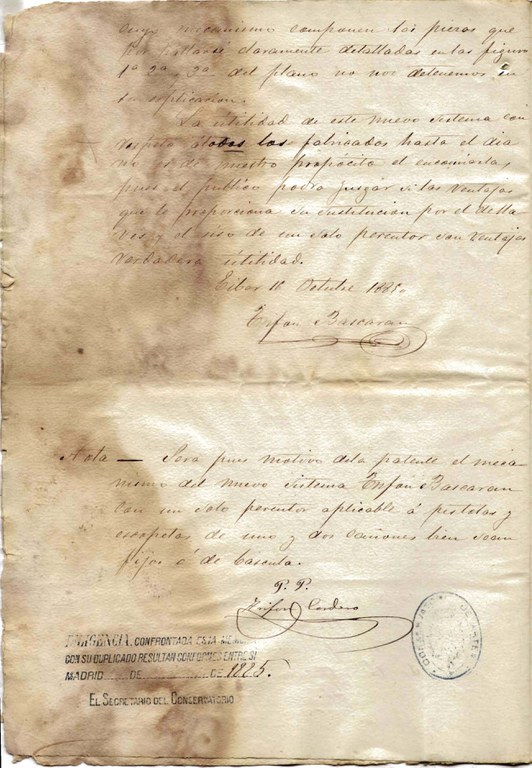 cuyo mecanismo componen las piezas que
hallarse claramente detalladas en las figuras
1ª 2ª y 3ª del plano no nos detenemos en
su esplicacion.
La utilidad de este nuevo sistema con
respeto átodos los fabricados hasta el dia
no es de nuestro proposito el encomiarlas
pues el publico podrá juzgar si las ventajas
que le proporciona su sustitucion por el de lla
ves y el uso de un solo percutor son ventajas
verdadera utilidad.
Eibar 16 Octubre 1885
Bascaran
Nota — Sera pues motivo dela patente el meca
nismo del nuevo sistema Bascaran
con un solo percutor aplicable á pistolas y
escopetas de uno y dos cañones bien sean
fijos ó de bascula.
P. P.
Cordero
DILIGENCIA. CONFRONTADA ESTA MEMORIA
CON SU DUPLICADO RESULTAN CONFORMES ENTRE SÍ
MADRID DE DE 1885.
EL SECRETARIO DEL CONSERVATORIO